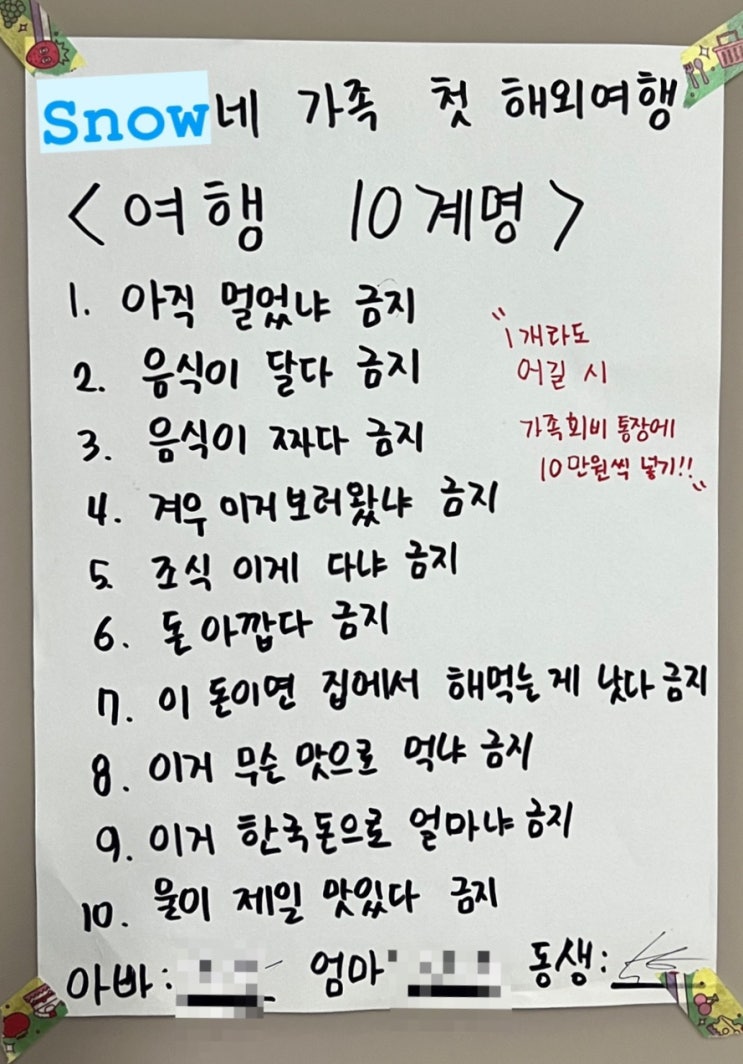 Snow네 가족 첫 해외여행
<여행 10계명>
1. 아직 멀었냐 금지
2. 음식이 달다 금지
3. 음식이 짜다 금지
4. 겨우 이거 보러왔냐 금지
5. 조식 이게 다냐 금지
6. 돈 아깝다 금지
7. 이 돈이면 집에서 해먹는 게 낫다 금지
8. 이거 무슨 맛으로 먹냐 금지
9. 이거 한국돈으로 얼마냐 금지
10. 물이 제일 맛있다 금지
"1개라도
어길 시
가족회비 통장에
10만원씩 넣기!!"
아빠: 엄마 동생: